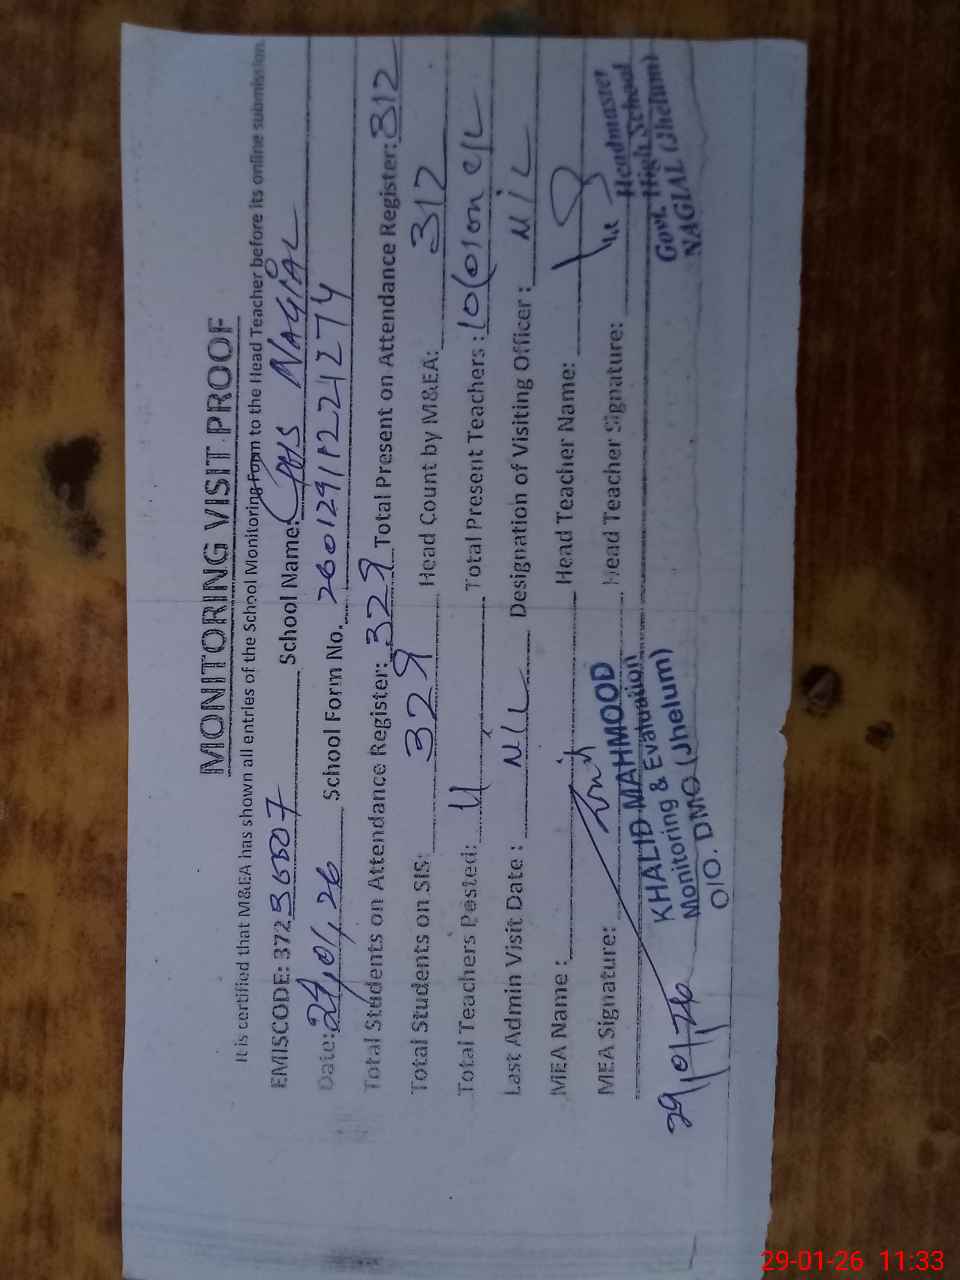 MONITORING VISIT PROOF
It is certified that M&EA has shown all entries of the School Monitoring Form to the Head Teacher before its online submission.
EMISCODE: 372 School Name: GHS NAGIAL
Date: 29/01/26 School Form No.
Total Students on Attendance Register: 329 Total Present on Attendance Register: 312
Total Students on SIS: 329 Head Count by M&EA: 312
Total Teachers Posted: 11 Total Present Teachers : 10(01 on C/L
Last Admin Visit Date : NIL Designation of Visiting Officer : NIL
MEA Name : Head Teacher Name:
MEA Signature: Head Teacher Signature:
KHALID MAHMOOD
Monitoring & Evaluation
O/O. DMO (Jhelum)
29/01/26
Headmaster
Govt. High School
NAGIAL (Jhelum)
29-01-26 11:33